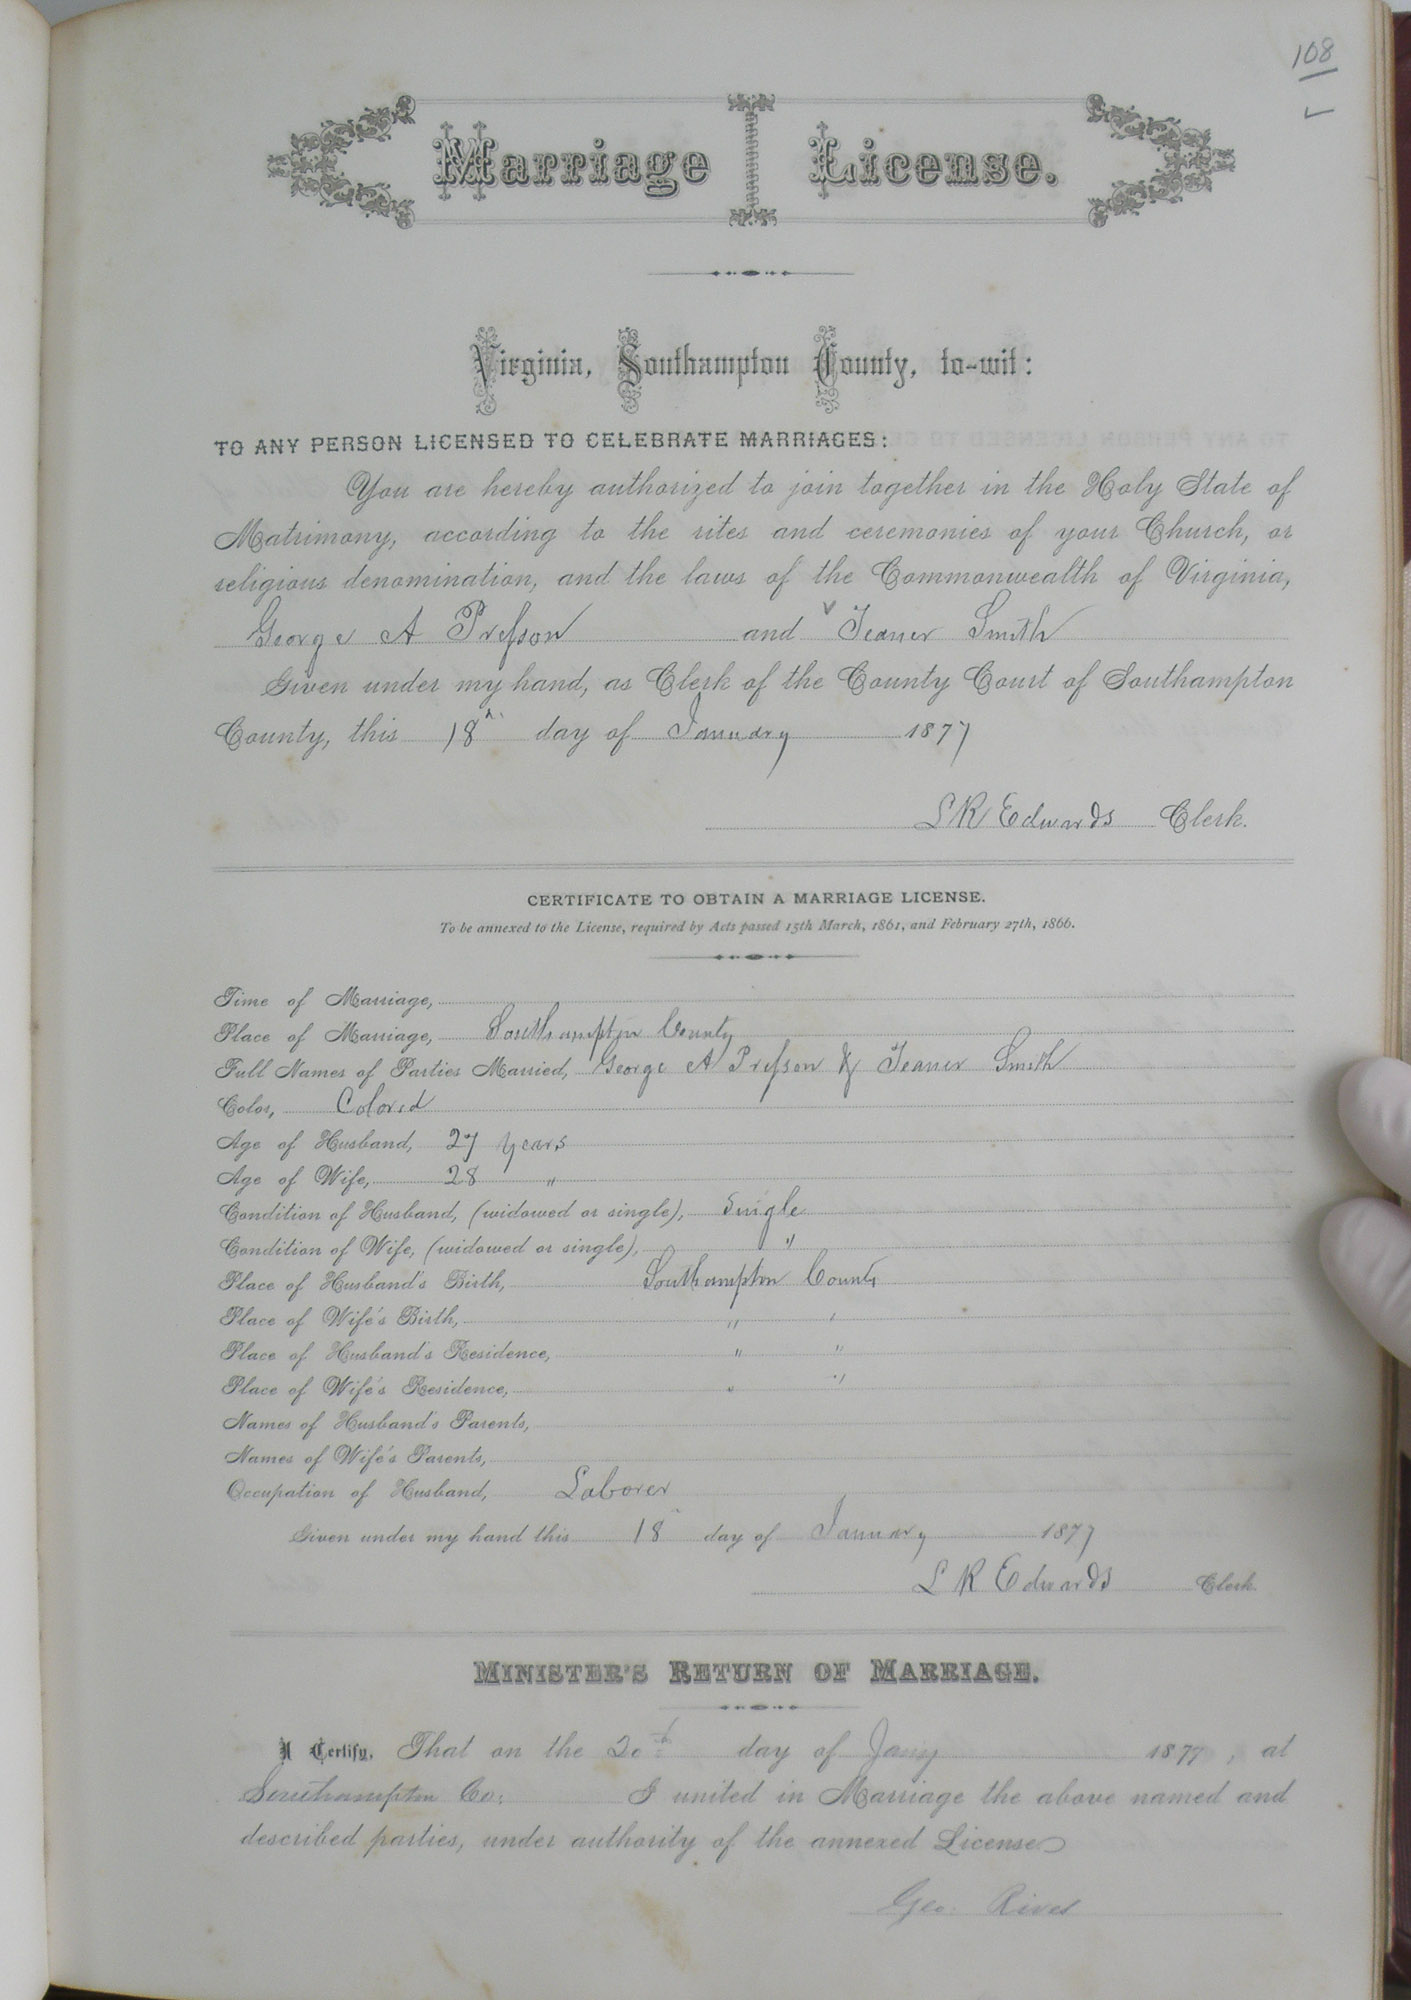 108
Marriage License.
Virginia, Southampton County, to-wit:
TO ANY PERSON LICENSED TO CELEBRATE MARRIAGES:
You are hereby authorized to join together in the Holy State of
Matrimony, according to the rites and ceremonies of your Church, or
religious denomination, and the laws of the Commonwealth of Virginia,
George A Presson and Teaner Smith
Given under my hand, as Clerk of the County Court of Southampton
County, this 18th day of January 1877
L R Edwards Clerk.
CERTIFICATE TO OBTAIN A MARRIAGE LICENSE.
To be annexed to the License, required by Acts passed 15th March, 1861, and February 27th, 1866.
Time of Marriage,
Place of Marriage, Southampton County
Full Names of Parties Married, George A Presson & Teaner Smith
Color, Colored
Age of Husband, 27 years
Age of Wife, 28 "
Condition of Husband, (widowed or single), Single
Condition of Wife, (widowed or single), "
Place of Husband's Birth, Southampton County
Place of Wife's Birth, " "
Place of Husband's Residence, " "
Place of Wife's Residence, " "
Names of Husband's Parents,
Names of Wife's Parents,
Occupation of Husband, Laborer
Given under my hand this 18 day of January 1877
L R Edwards Clerk.
MINISTER'S RETURN OF MARRIAGE.
I Certify, That on the 20th day of Jany 1877, at
Southampton Co: I united in Marriage the above named and
described parties, under authority of the annexed License
Geo: Rives